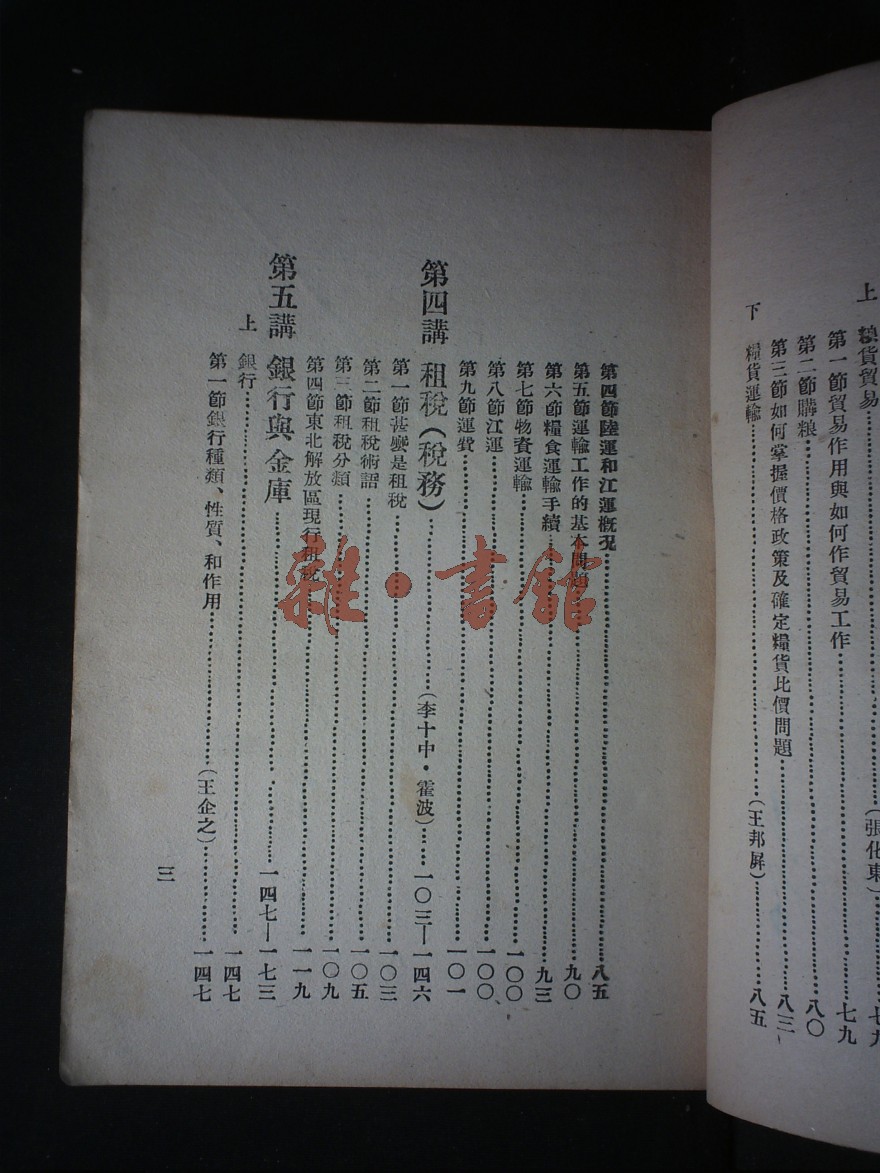 上 糧貨貿易……(張化東)……七九
第一節貿易作用與如何作貿易工作……七九
第二節購粮……八〇
第三節如何掌握價格政策及確定糧貨比價問題……八三
下 糧貨運輸……(王邦屏)……八五
第四節陸運和江運概況……八五
第五節運輸工作的基本問題……九〇
第六節糧食運輸手續……九三
第七節物資運輸……一〇〇
第八節江運……一〇〇
第九節運費……一〇一
第四講 租稅(稅務)……(李十中·霍波)……一〇三—一四六
第一節甚麼是租稅……一〇三
第二節租稅術語……一〇五
第三節租稅分類……一〇九
第四節東北解放區現行租稅……一一九
第五講 銀行與金庫……一四七—一七三
上 銀行……一四七
第一節銀行種類、性質、和作用……(王企之)……一四七
三
雜·書館